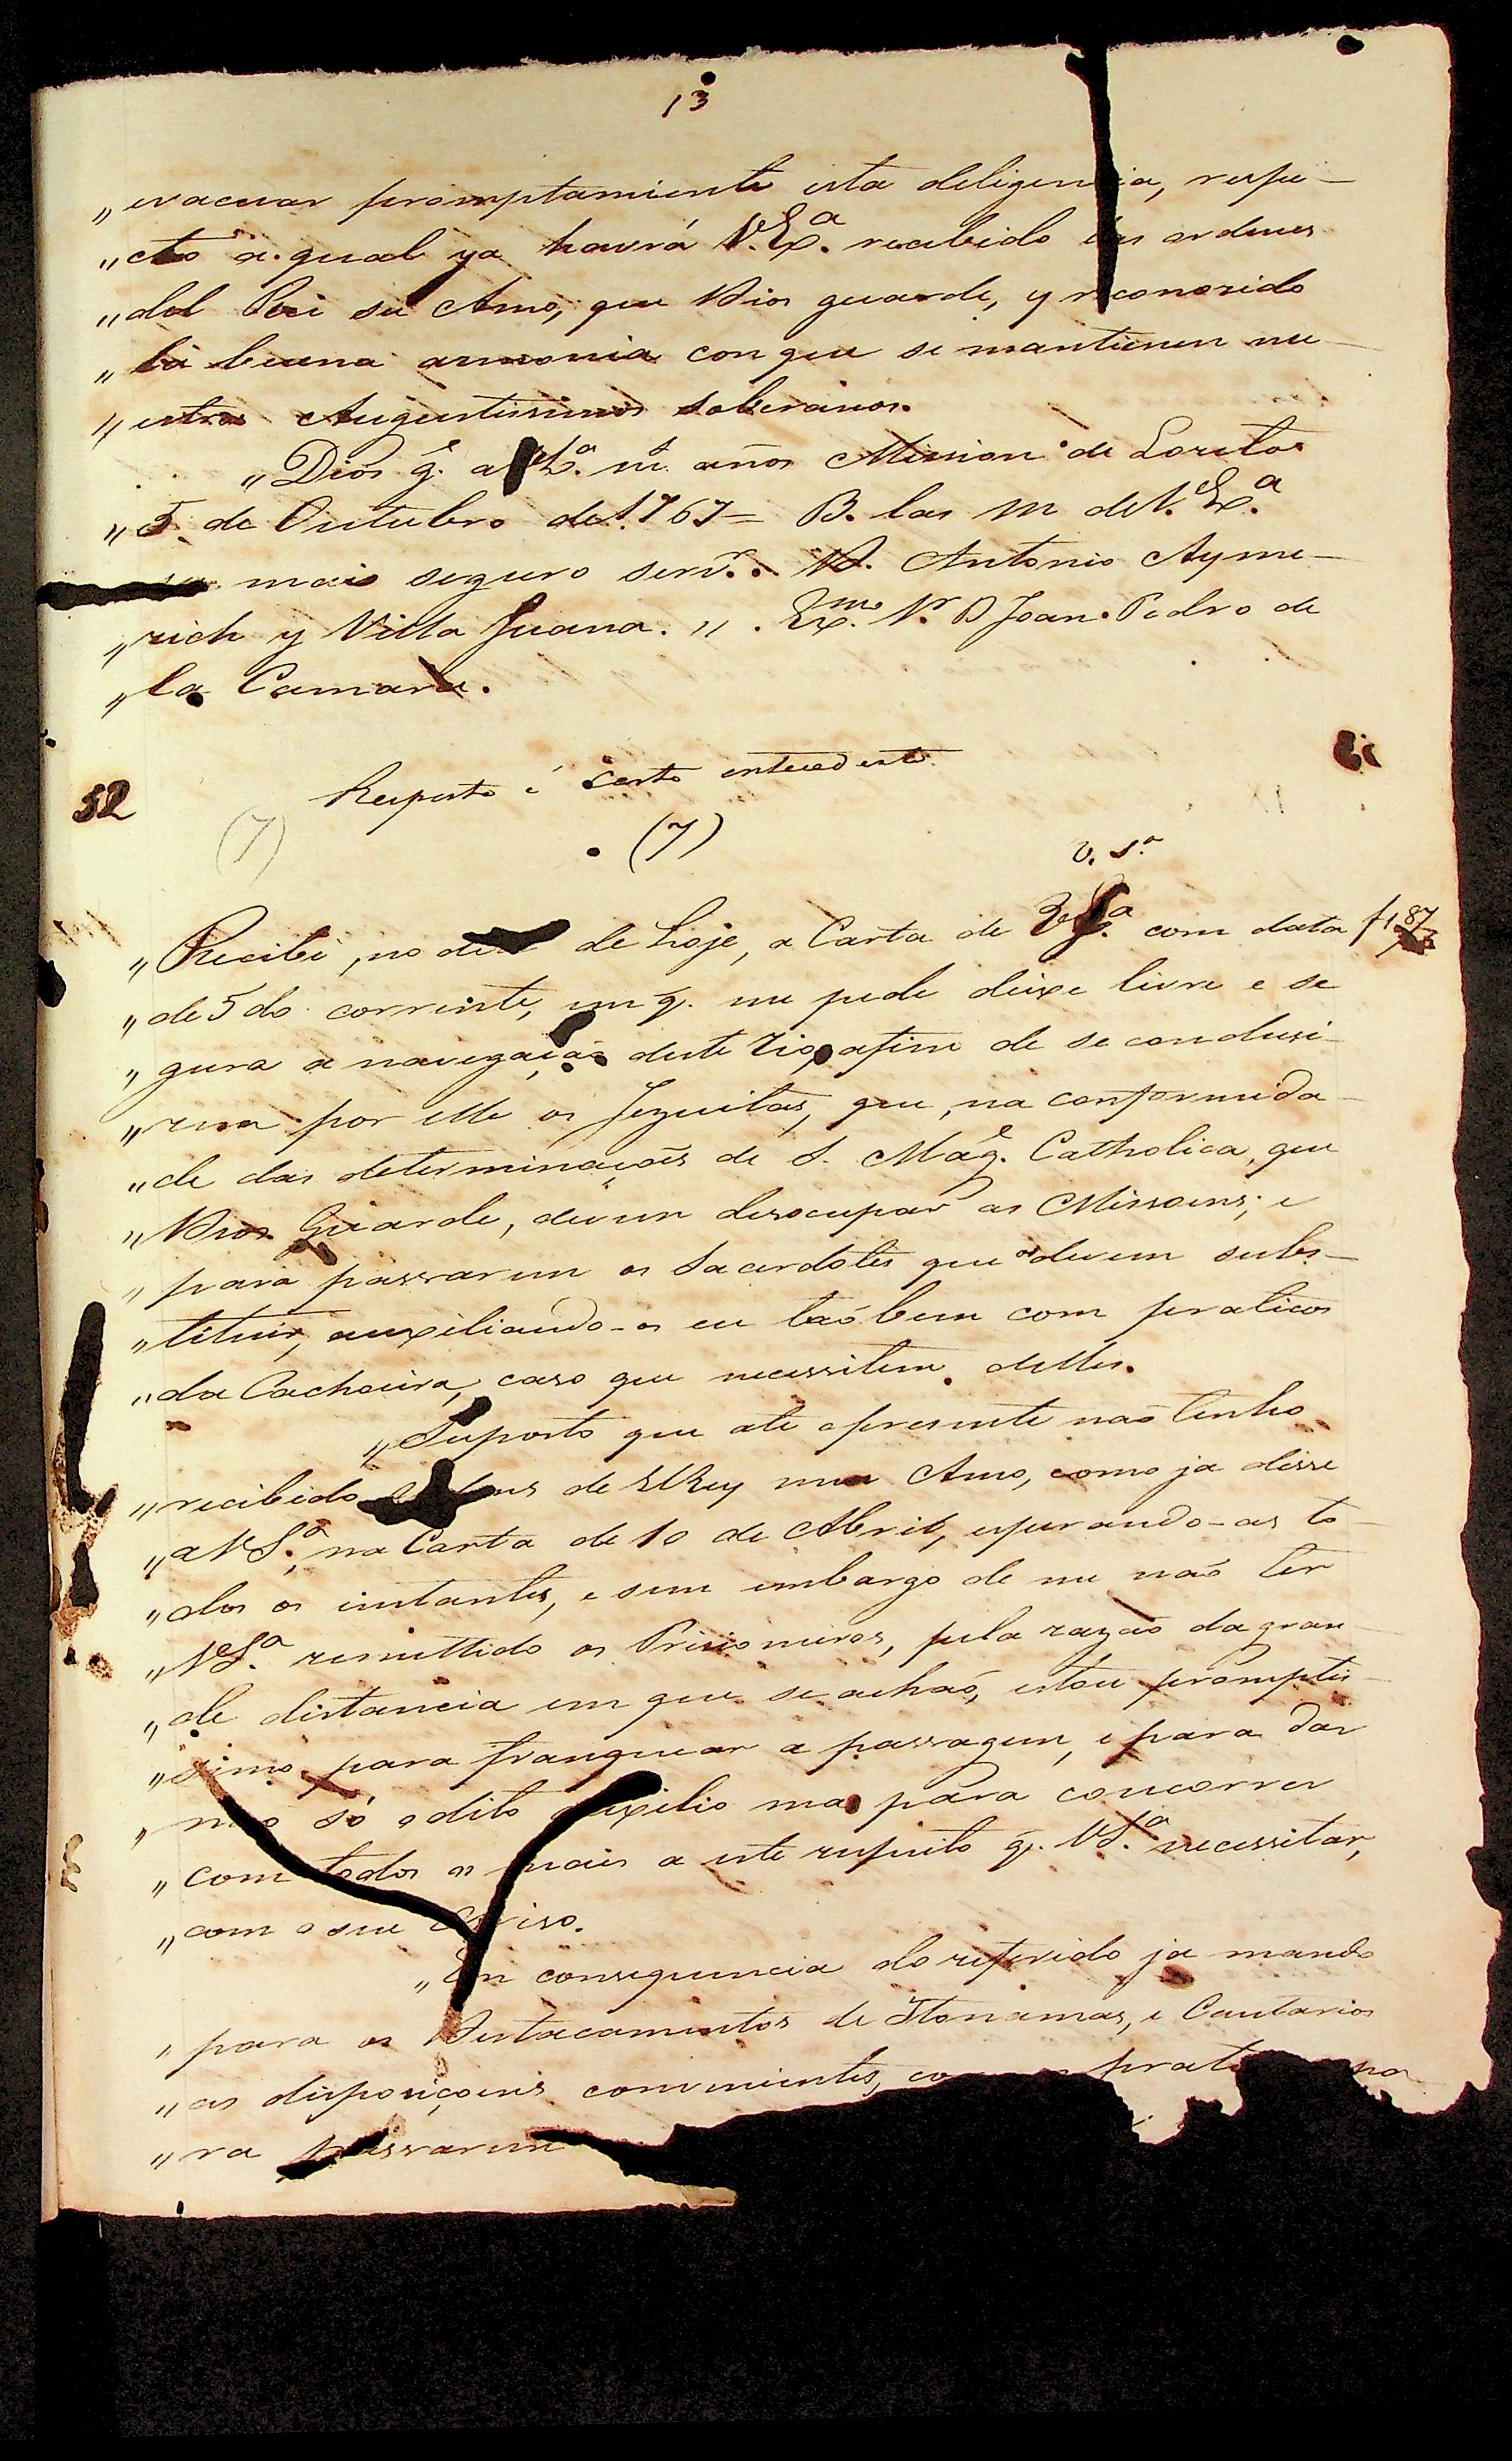 13
„evacuar promptamiente esta deligencia, respe-
„cto a qual ya havrá V. Exª. recebido las ordenes
„del Rei su Amo, que Dios guarde, y reconosido
„la buena armonia con que se mantienen nu-
„estros Augustissimos soberanos.
„Dios g.e a V. Exª. m.s años Mission de Loreto
„5 de Outubro de 1767 = B. las m de V. Exª.
su mais seguro serv.r. D. Antonio Ayme-
„rich y Villa Juana. „ . Ex.mo S.r D Joan Pedro de
„la Camara.
52
Resposta á carta antecedente
(7) (7)
V. Sª
„Recibi, no dia de hoje, a Carta de com data f 187
„de 5 do corrente, em q. me pede deixe livre e se
„gura a navegação deste rio, afim de se condusi-
„rem por elle os Jezuitas, que, na conformida-
„de das determinaçoẽs de S. Mag.e Catholica, que
„Dios Guarde, devem desocupar as Missoens; e
„para passarem os Sacerdotes que os devem subs-
„tituir, auxiliando-os eu taõbem com praticos
„da Cachoeira, caso que necessitem delles.
„Suposto que ate o presente naõ tenho
„recibido ordens de ElRey meu Amo, como ja disse
„a V Sª., na Carta de 10 de Abril, esperando-as to-
„dos os instantes, e sem embargo de me naõ ter
„V Sª. remettido os Prisioneiros, pela razaõ da gran-
„de distancia em que se achaõ, estou promptis-
„simo para franquear a passagem, e para dar
„não só o dito auxilio mas para concorrer
„com todos os mais a este respeito q. V Sª. necessitar,
„com o seu Aviso.
„Em consequencia do referido ja mando
„para os Destacamentos de Itonamas, e Cautarios
„as disposiçoens convenientes, pa
„ra passarem